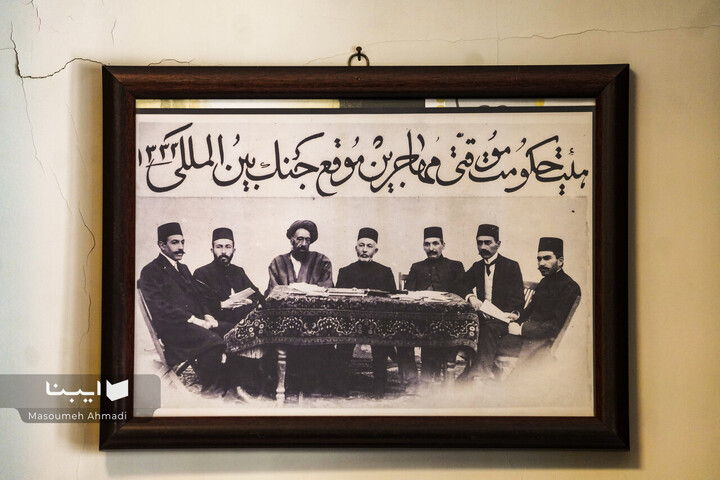 هيئت حكومت موقتى مهاجرين موقع جنك بين المللى ۱۳۳۲
ایبنا
Masoumeh Ahmadi